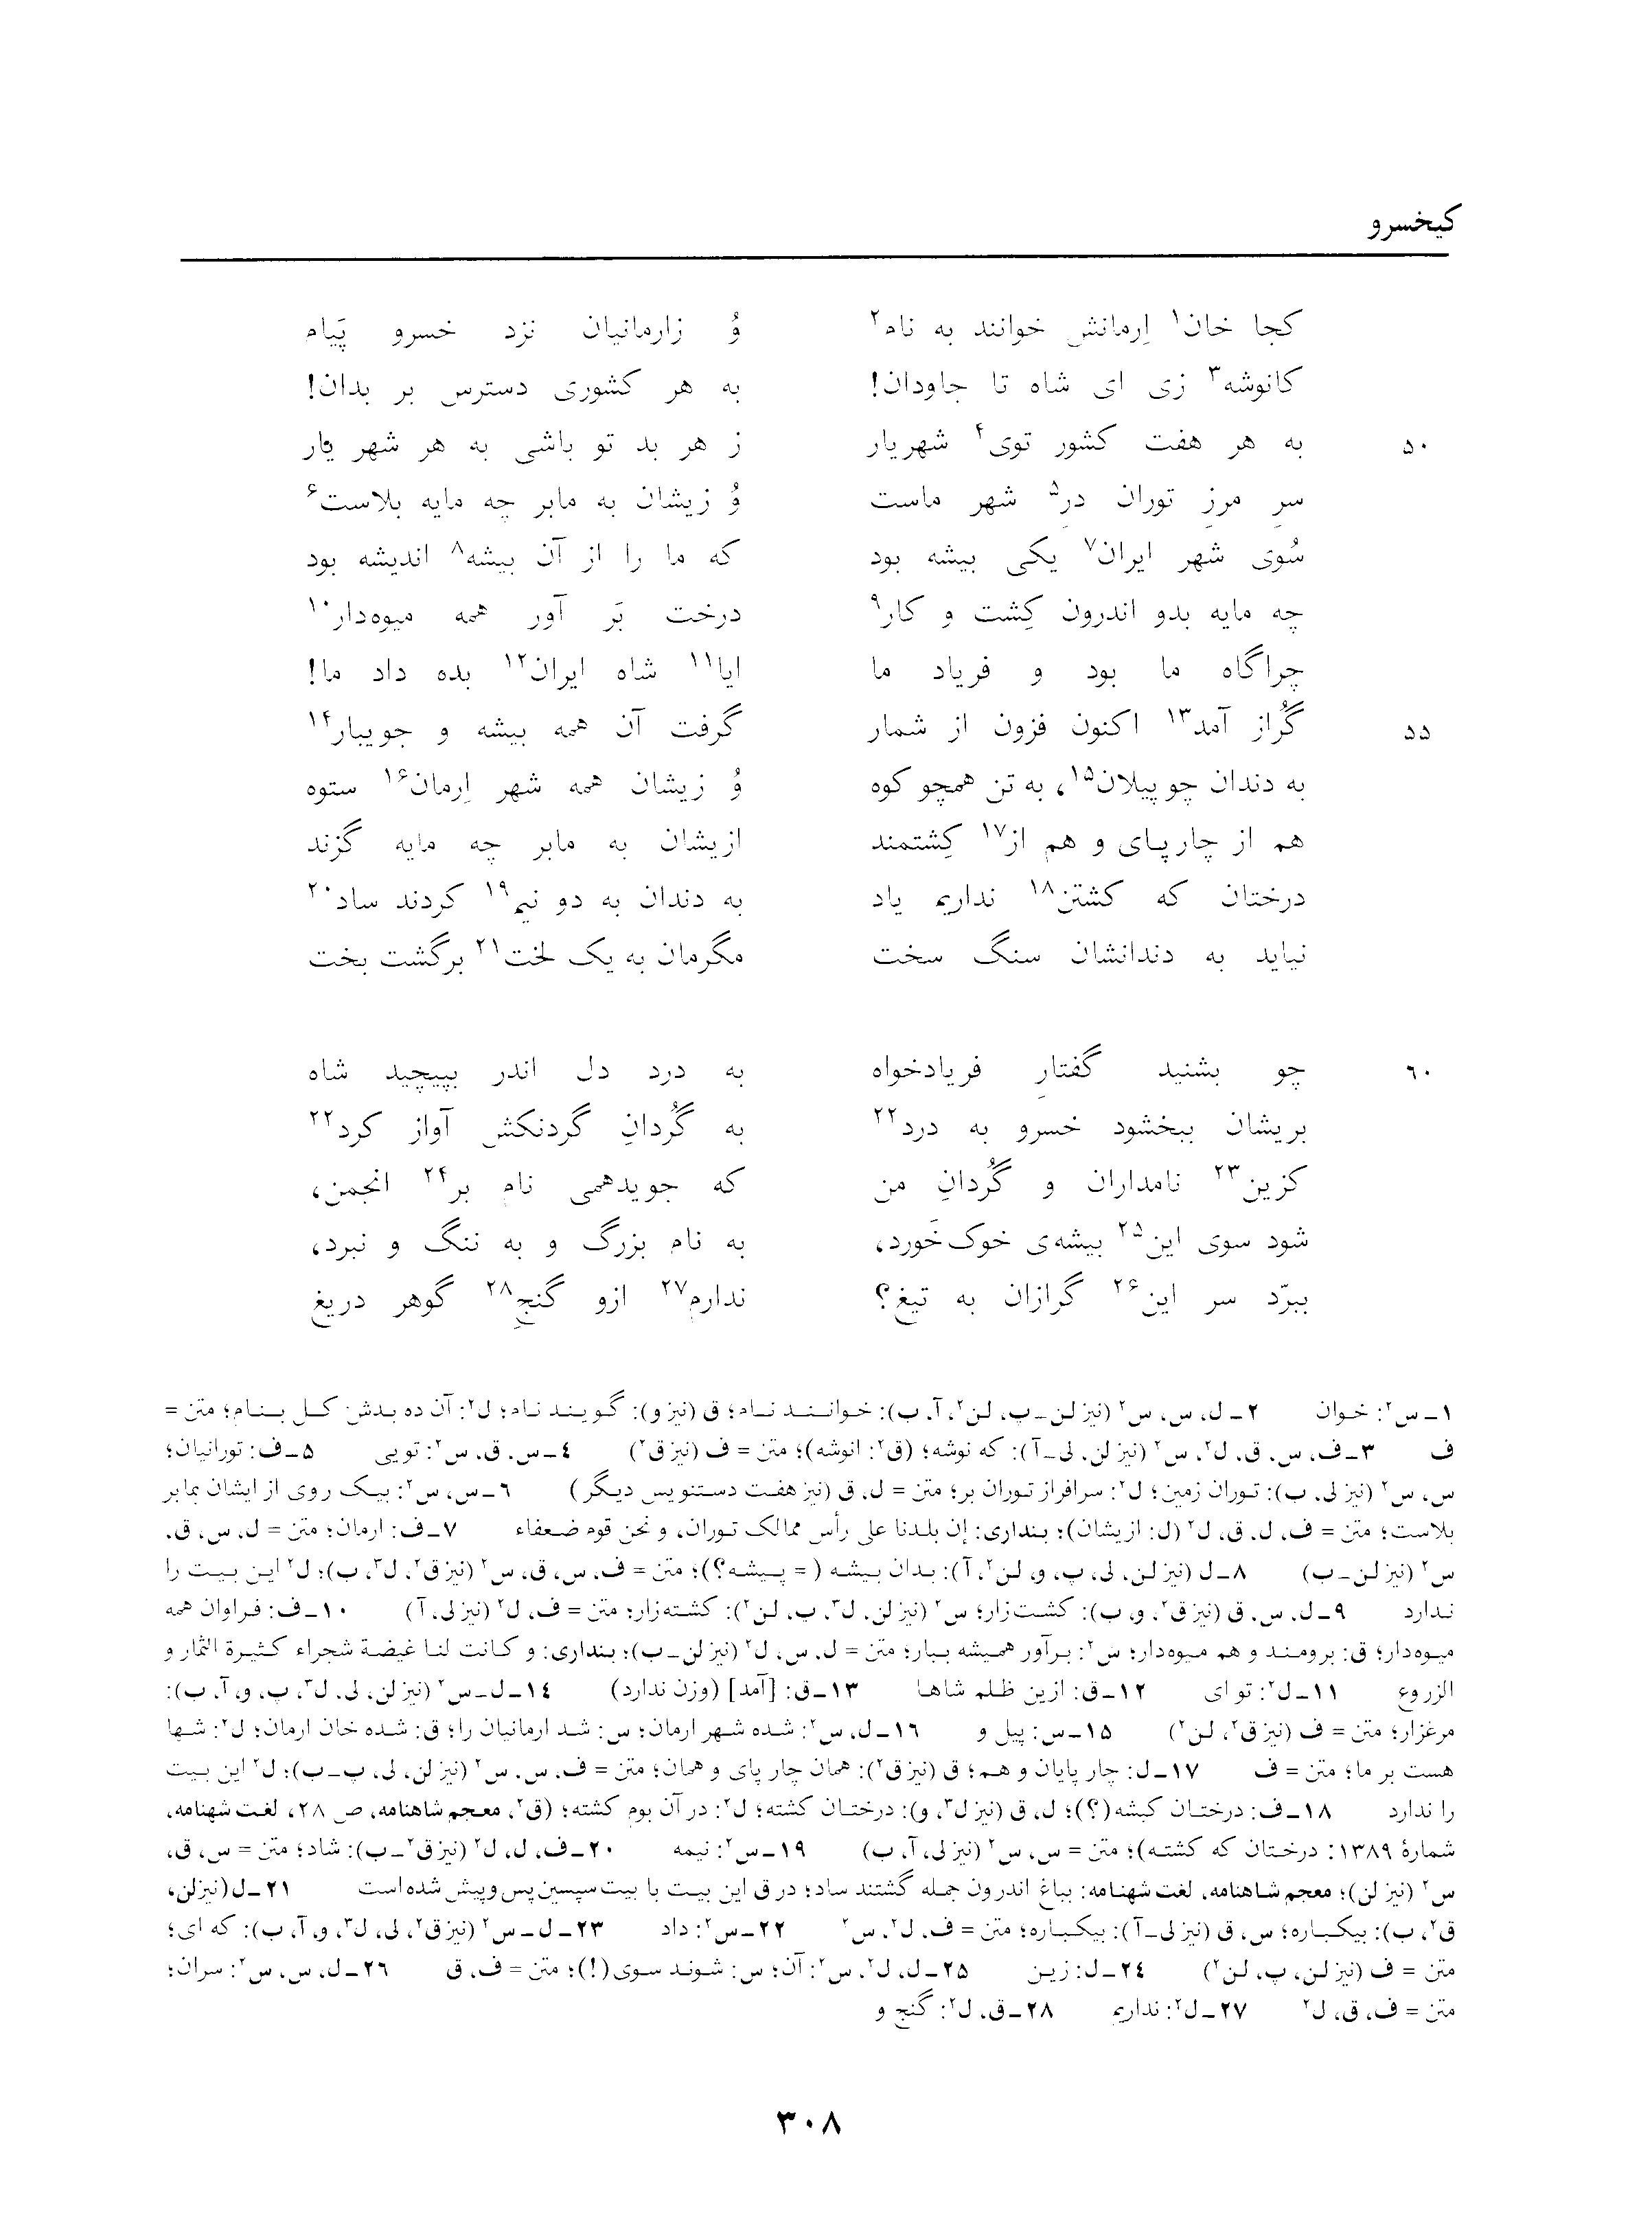 کیخسرو
کجا خان۱ اِرمانش خوانند به نام۲ وُ زارمانیان نزد خسرو پَیام
کانوشه۳ زی ای شاه تا جاودان! به هر کشوری دسترس بر بدان!
۵۰ به هر هفت کشور توی۴ شهریار ز هر بد تو باشی به هر شهر یار
سرِ مرزِ توران درِ۵ شهر ماست وُ زیشان به مابر چه مایه بلاست۶
سُوی شهر ایران۷ یکی بیشه بود که ما را از آن بیشه۸ اندیشه بود
چه مایه بدو اندرون کِشت و کار۹ درخت بَر آور همه میوه‌دار۱۰
چراگاه ما بود و فریاد ما ایا۱۱ شاه ایران۱۲ بده داد ما!
۵۵ گُراز آمد۱۳ اکنون فزون از شمار گرفت آن همه بیشه و جویبار۱۴
به دندان چو پیلان۱۵، به تن همچو کوه وُ زیشان همه شهر اِرمان۱۶ ستوه
هم از چارپای و هم از۱۷ کِشتمند ازیشان به مابر چه مایه گزند
درختان که کشتن۱۸ نداریم یاد به دندان به دو نیم۱۹ کردند ساد۲۰
نیاید به دندانشان سنگ سخت مگرمان به یک لخت۲۱ برگشت بخت
۶۰ چو بشنید گفتارِ فریادخواه به درد دل اندر بپیچید شاه
بریشان ببخشود خسرو به درد۲۲ به گُردانِ گردنکش آواز کرد۲۲
کزین۲۳ نامداران و گُردانِ من که جویدهمی نام بر۲۴ انجمن،
شود سوی این۲۵ بیشه‌ی خوک خَورد، به نام بزرگ و به ننگ و نبرد،
ببرّد سر این۲۶ گرازان به تیغ؟ ندارم۲۷ ازو گنجِ۲۸ گوهر دریغ
۱ـ س۲: خوان ۲ـ ل، س، س۲ (نیز لن ـ پ، لن۲، آ، ب): خوانند نام؛ ق (نیز و): گویند نام؛ ل۲: آن ده بدش کل بنام؛ متن =
ف ۳ـ ف، س، ق، ل۲، س۲ (نیز لن، لی ـ آ): که نوشه؛ (ق۲: انوشه)؛ متن = ف (نیز ق۲) ۴ـ س، ق، س۲: تویی ۵ـ ف: تورانیان؛
س، س۲ (نیز لی، ب): توران زمین؛ ل۲: سرافراز توران بر؛ متن = ل، ق (نیز هفت دستنویس دیگر) ۶ـ س، س۲: بیک روی از ایشان بمابر
بلاست؛ متن = ف، ل، ق، ل۲ (ل: ازیشان)؛ بنداری: إن بلدنا علی رأس ممالک توران، و نحن قوم ضعفاء ۷ـ ف: ارمان؛ متن = ل، س، ق،
س۲ (نیز لن ـ ب) ۸ـ ل (نیز لن، لی، پ، و، لن۲، آ): بدان بیشه (= پیشه؟)؛ متن = ف، س، ق، س۲ (نیز ق۲، ل۳، ب)؛ ل۲ این بیت را
ندارد ۹ـ ل، س، ق (نیز ق۲، و، ب): کشت‌زار؛ س۲ (نیز لن، ل۳، پ، لن۲): کشته‌زار؛ متن = ف، ل۲ (نیز لی، آ) ۱۰ـ ف: فراوان همه
میوه‌دار؛ ق: برومند و هم میوه‌دار؛ س۲: برآور همیشه ببار؛ متن = ل، س، ل۲ (نیز لن ـ ب)؛ بنداری: و کانت لنا غیضة شجراء کثیرة الثمار و
الزروع ۱۱ـ ل۲: تو ای ۱۲ـ ق: ازین ظلم شاها ۱۳ـ ق: [آمد] (وزن ندارد) ۱۴ـ ل ـ س۲ (نیز لن، لی، ل۳، پ، و، آ، ب):
مرغزار؛ متن = ف (نیز ق۲، لن۲) ۱۵ـ س: پیل و ۱۶ـ ل، س۲: شده شهر ارمان؛ س: شد ارمانیان را؛ ق: شده خان ارمان؛ ل۲: شها
هست بر ما؛ متن = ف ۱۷ـ ل: چار پایان و هم؛ ق (نیز ق۲): همان چار پای و همان؛ متن = ف، س، س۲ (نیز لن، لی، پ ـ ب)؛ ل۲ این بیت
را ندارد ۱۸ـ ف: درختان کبشه (؟)؛ ل، ق (نیز ل۳، و): درختان کشته؛ ل۲: در آن بوم کشته؛ (ق۲، معجم شاهنامه، ص ۲۸، لغت شهنامه،
شمارهٔ ۱۳۸۹: درختان که کشته)؛ متن = س، س۲ (نیز لی، آ، ب) ۱۹ـ س۲: نیمه ۲۰ـ ف، ل، ل۲ (نیز ق۲ ـ ب): شاد؛ متن = س، ق،
س۲ (نیز لن)؛ معجم شاهنامه، لغت شهنامه: بباغ اندرون جمله گشتند ساد؛ در ق این بیت با بیت سپسین پس و پیش شده است ۲۱ـ ل (نیز لن،
ق۲، ب): بیکباره؛ س، ق (نیز لی ـ آ): بیکباره؛ متن = ف، ل۲، س۲ ۲۲ـ س۲: داد ۲۳ـ ل ـ س۲ (نیز ق۲، لی، ل۳، و، آ، ب): که ای؛
متن = ف (نیز لن، پ، لن۲) ۲۴ـ ل: زین ۲۵ـ ل، ل۲، س۲: آن؛ س: شوند سوی (!)؛ متن = ف، ق ۲۶ـ ل، س، س۲: سران؛
متن = ف، ق، ل۲ ۲۷ـ ل۲: نداریم ۲۸ـ ق، ل۲: گنج و
۳۰۸